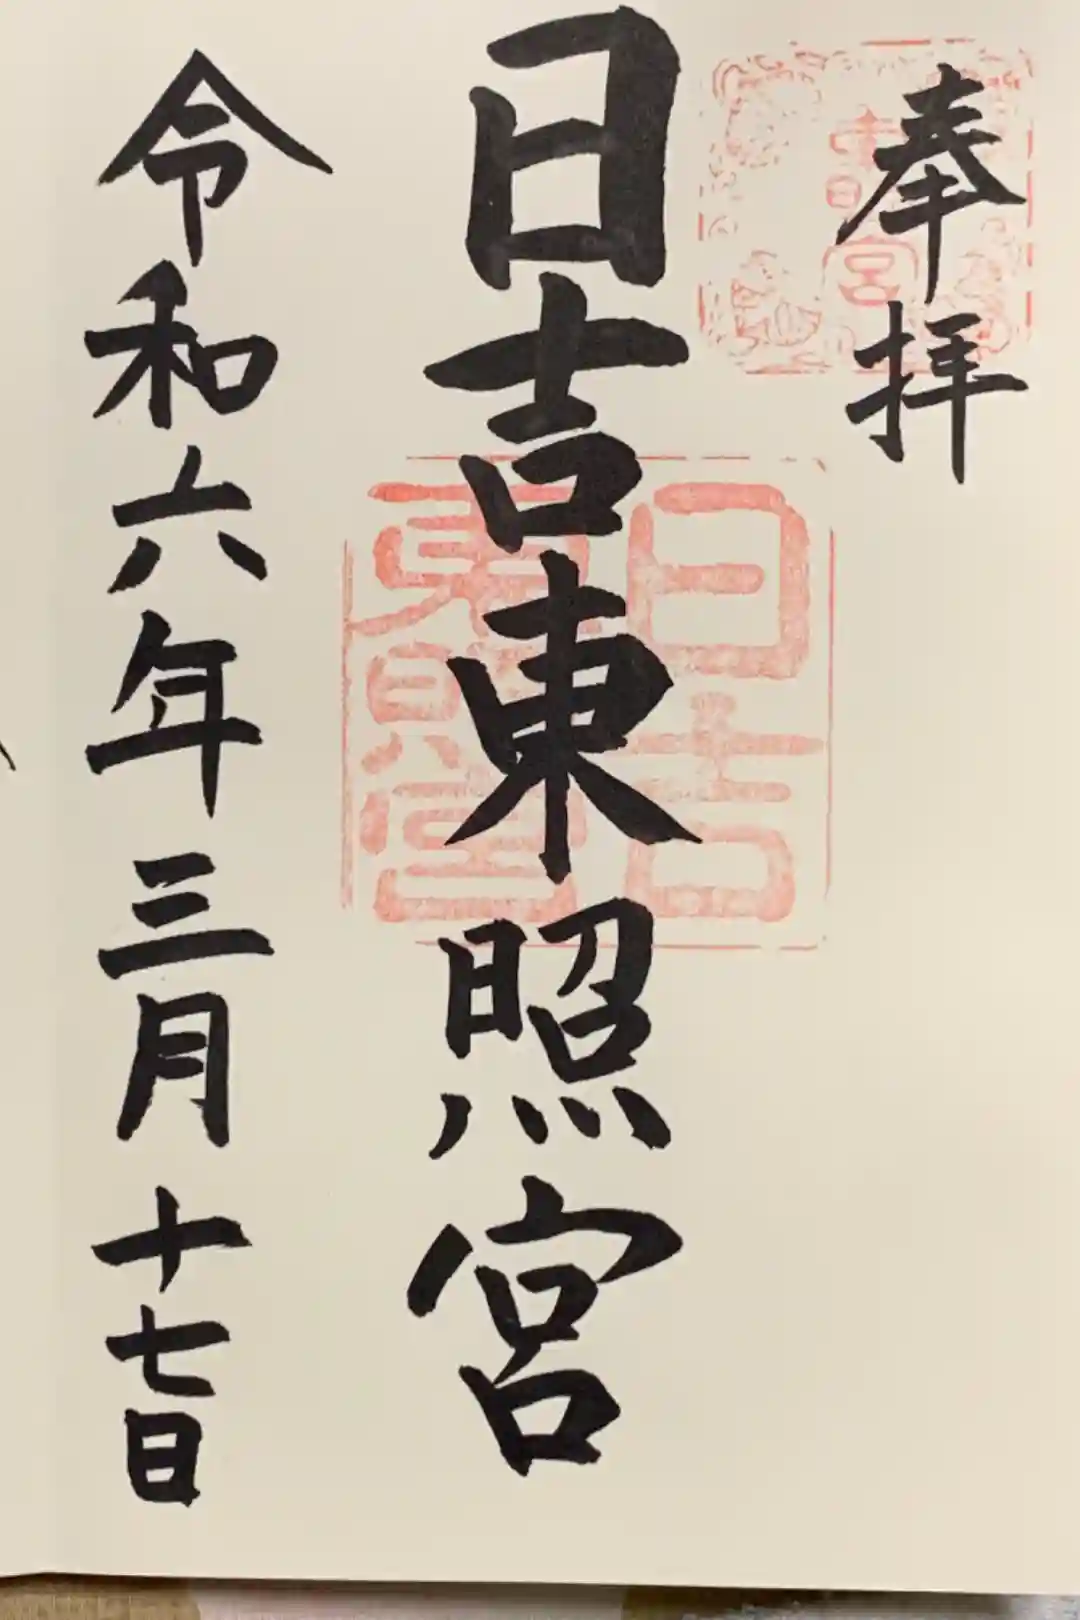 奉拝
東照宮
日吉東照宮
日吉
東照宮
令和六年三月十七日